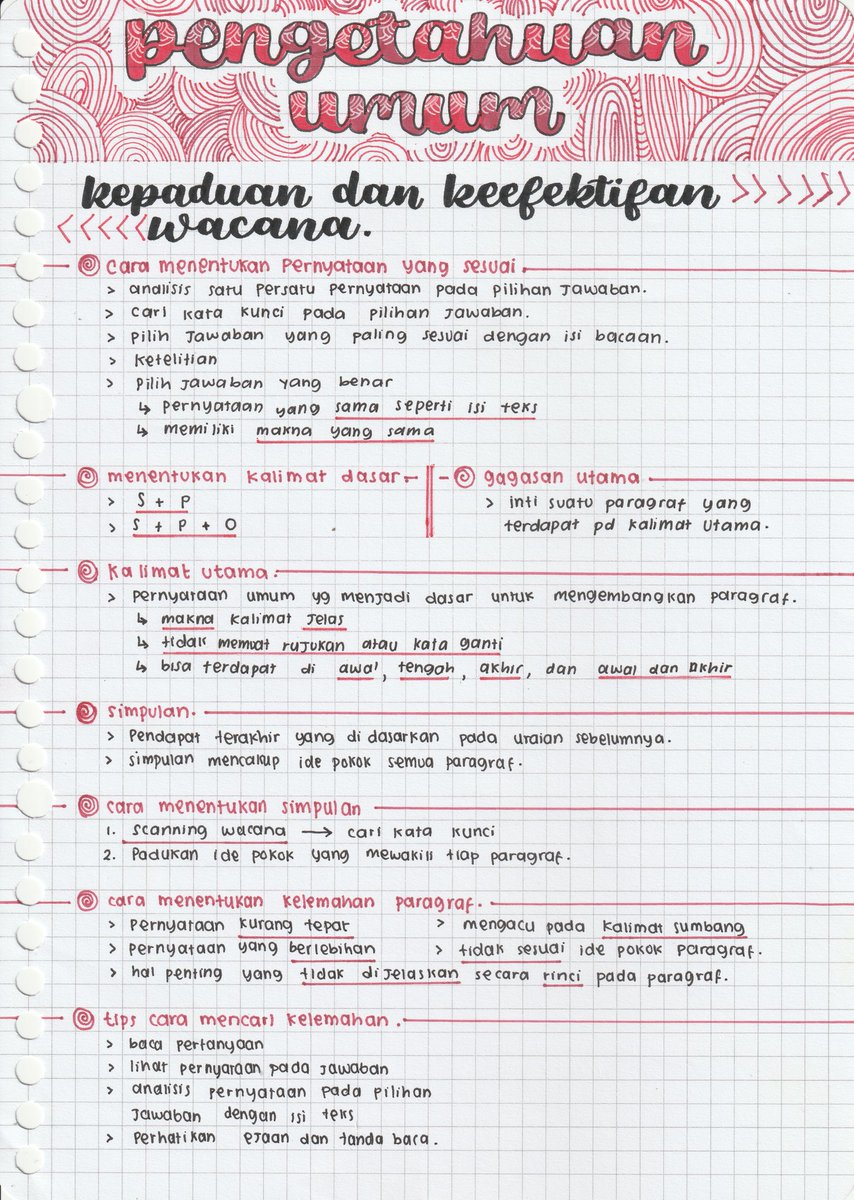 pengetahuan
umum
kepaduan dan keefektifan >>>>>>
<<<<< wacana.
cara menentukan pernyataan yang sesuai.
> analisis satu persatu pernyataan pada pilihan jawaban.
> cari kata kunci pada pilihan jawaban.
> pilih jawaban yang paling sesuai dengan isi bacaan.
> ketelitian
> pilih jawaban yang benar
↳ pernyataan yang sama seperti isi teks
↳ memiliki makna yang sama
menentukan kalimat dasar.
> S + P
> S + P + O
gagasan utama
> inti suatu paragraf yang
terdapat pd kalimat utama.
kalimat utama.
> pernyataan umum yg menjadi dasar untuk mengembangkan paragraf.
↳ makna kalimat jelas
↳ tidak memuat rujukan atau kata ganti
↳ bisa terdapat di awal, tengah, akhir, dan awal dan akhir
simpulan.
> pendapat terakhir yang di dasarkan pada uraian sebelumnya.
> simpulan mencakup ide pokok semua paragraf.
cara menentukan simpulan
1. scanning wacana → cari kata kunci
2. Padukan ide pokok yang mewakili tiap paragraf.
cara menentukan kelemahan paragraf.
> pernyataan kurang tepat
> pernyataan yang berlebihan
> hal penting yang tidak dijelaskan secara rinci pada paragraf.
> mengacu pada kalimat sumbang
> tidak sesuai ide pokok paragraf.
tips cara mencari kelemahan.
> baca pertanyaan
> lihat pernyataan pada jawaban
> analisis pernyataan pada pilihan
jawaban dengan isi teks
> perhatikan ejaan dan tanda baca.